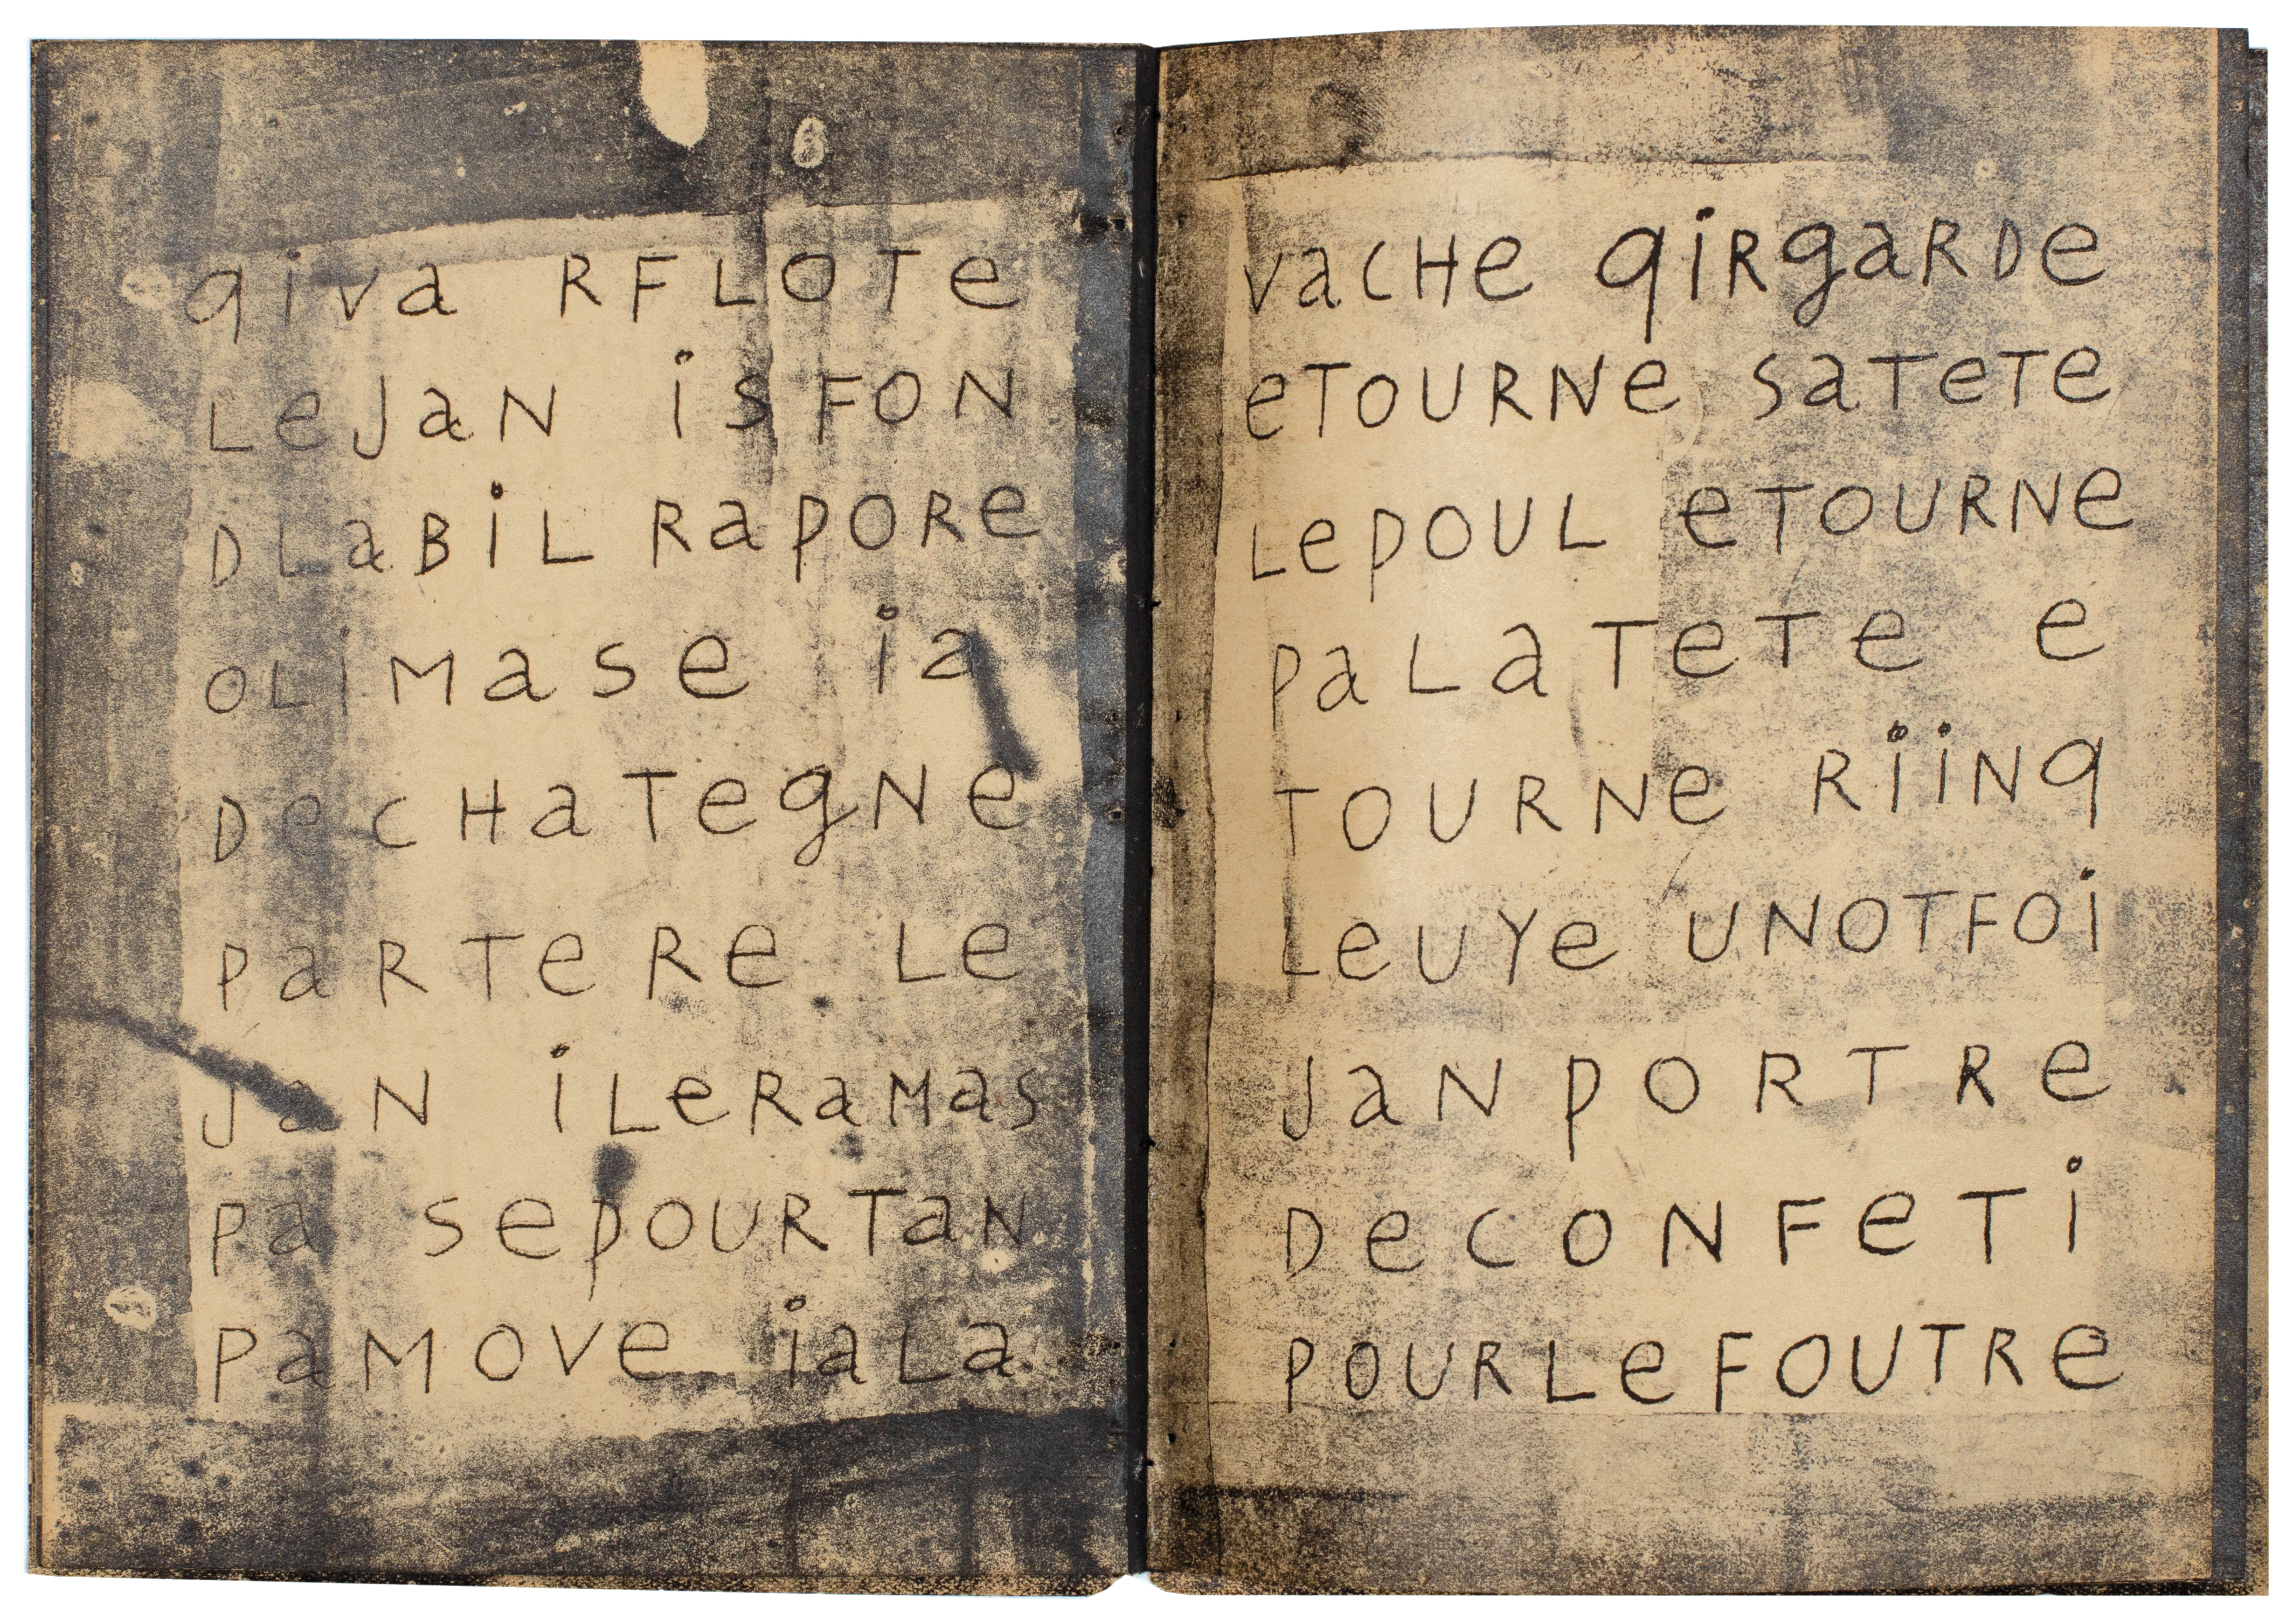 qiva RFLOTe
LeJaN isFON
DLaBiL RapORe
OLiMase ia
DecHaTegNe
paRTeRe Le
JaN iLeRaMas
pa sepOURTaN
paMOve iaLa
vacHe qiRgaRDe
eTOURNe saTeTe
LepOUL eTOURNe
paLaTeTe e
TOURNe RiiNq
LeUYe UNOTFOi
JaNpORTRe
DecONFeTi
pOURLeFOUTRe